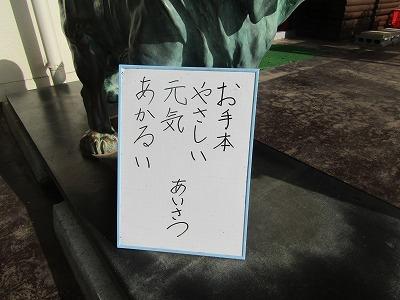 お手本
やさしい
元気
あかるい
あいさつ